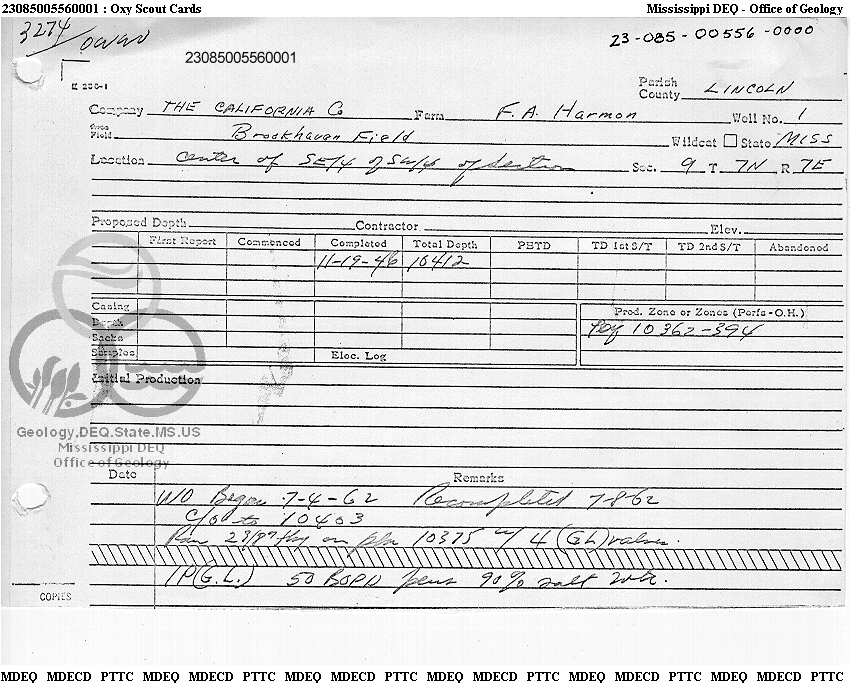 23085005560001 : Oxy Scout Cards Mississippi DEQ - Office of Geology
3274/Owen
23085005560001
23-085-00556-0000
Parish
County LINCOLN
Company THE CALIFORNIA Co Farm F.A. Harmon Well No. 1
Area
Field Brookhaven Field Wildcat State MISS
Location Center of SE/4 of SW/4 of Section Sec. 9 T 7N R 7E
Proposed Depth Contractor Elev.
First Report Commenced Completed Total Depth PBTD TD 1st S/T TD 2nd S/T Abandoned
11-19-46 10412
Casing Prod. Zone or Zones (Perfs - O.H.)
Depth Perf 10362-394
Sacks
Samples Elec. Log
Initial Production
Geology.DEQ.State.MS.US
Mississippi DEQ
Office of Geology
Date Remarks
W/O Began 7-4-62 Recompleted 7-8-62
C/O to 10403
Ran 2 3/8" tbg on pkr 10375 w/ 4 (GL) valves.
IP (G.L.) 50 BOPD plus 90% salt wtr.
COPIES
MDEQ MDECD PTTC MDEQ MDECD PTTC MDEQ MDECD PTTC MDEQ MDECD PTTC MDEQ MDECD PTTC MDEQ MDECD PTTC